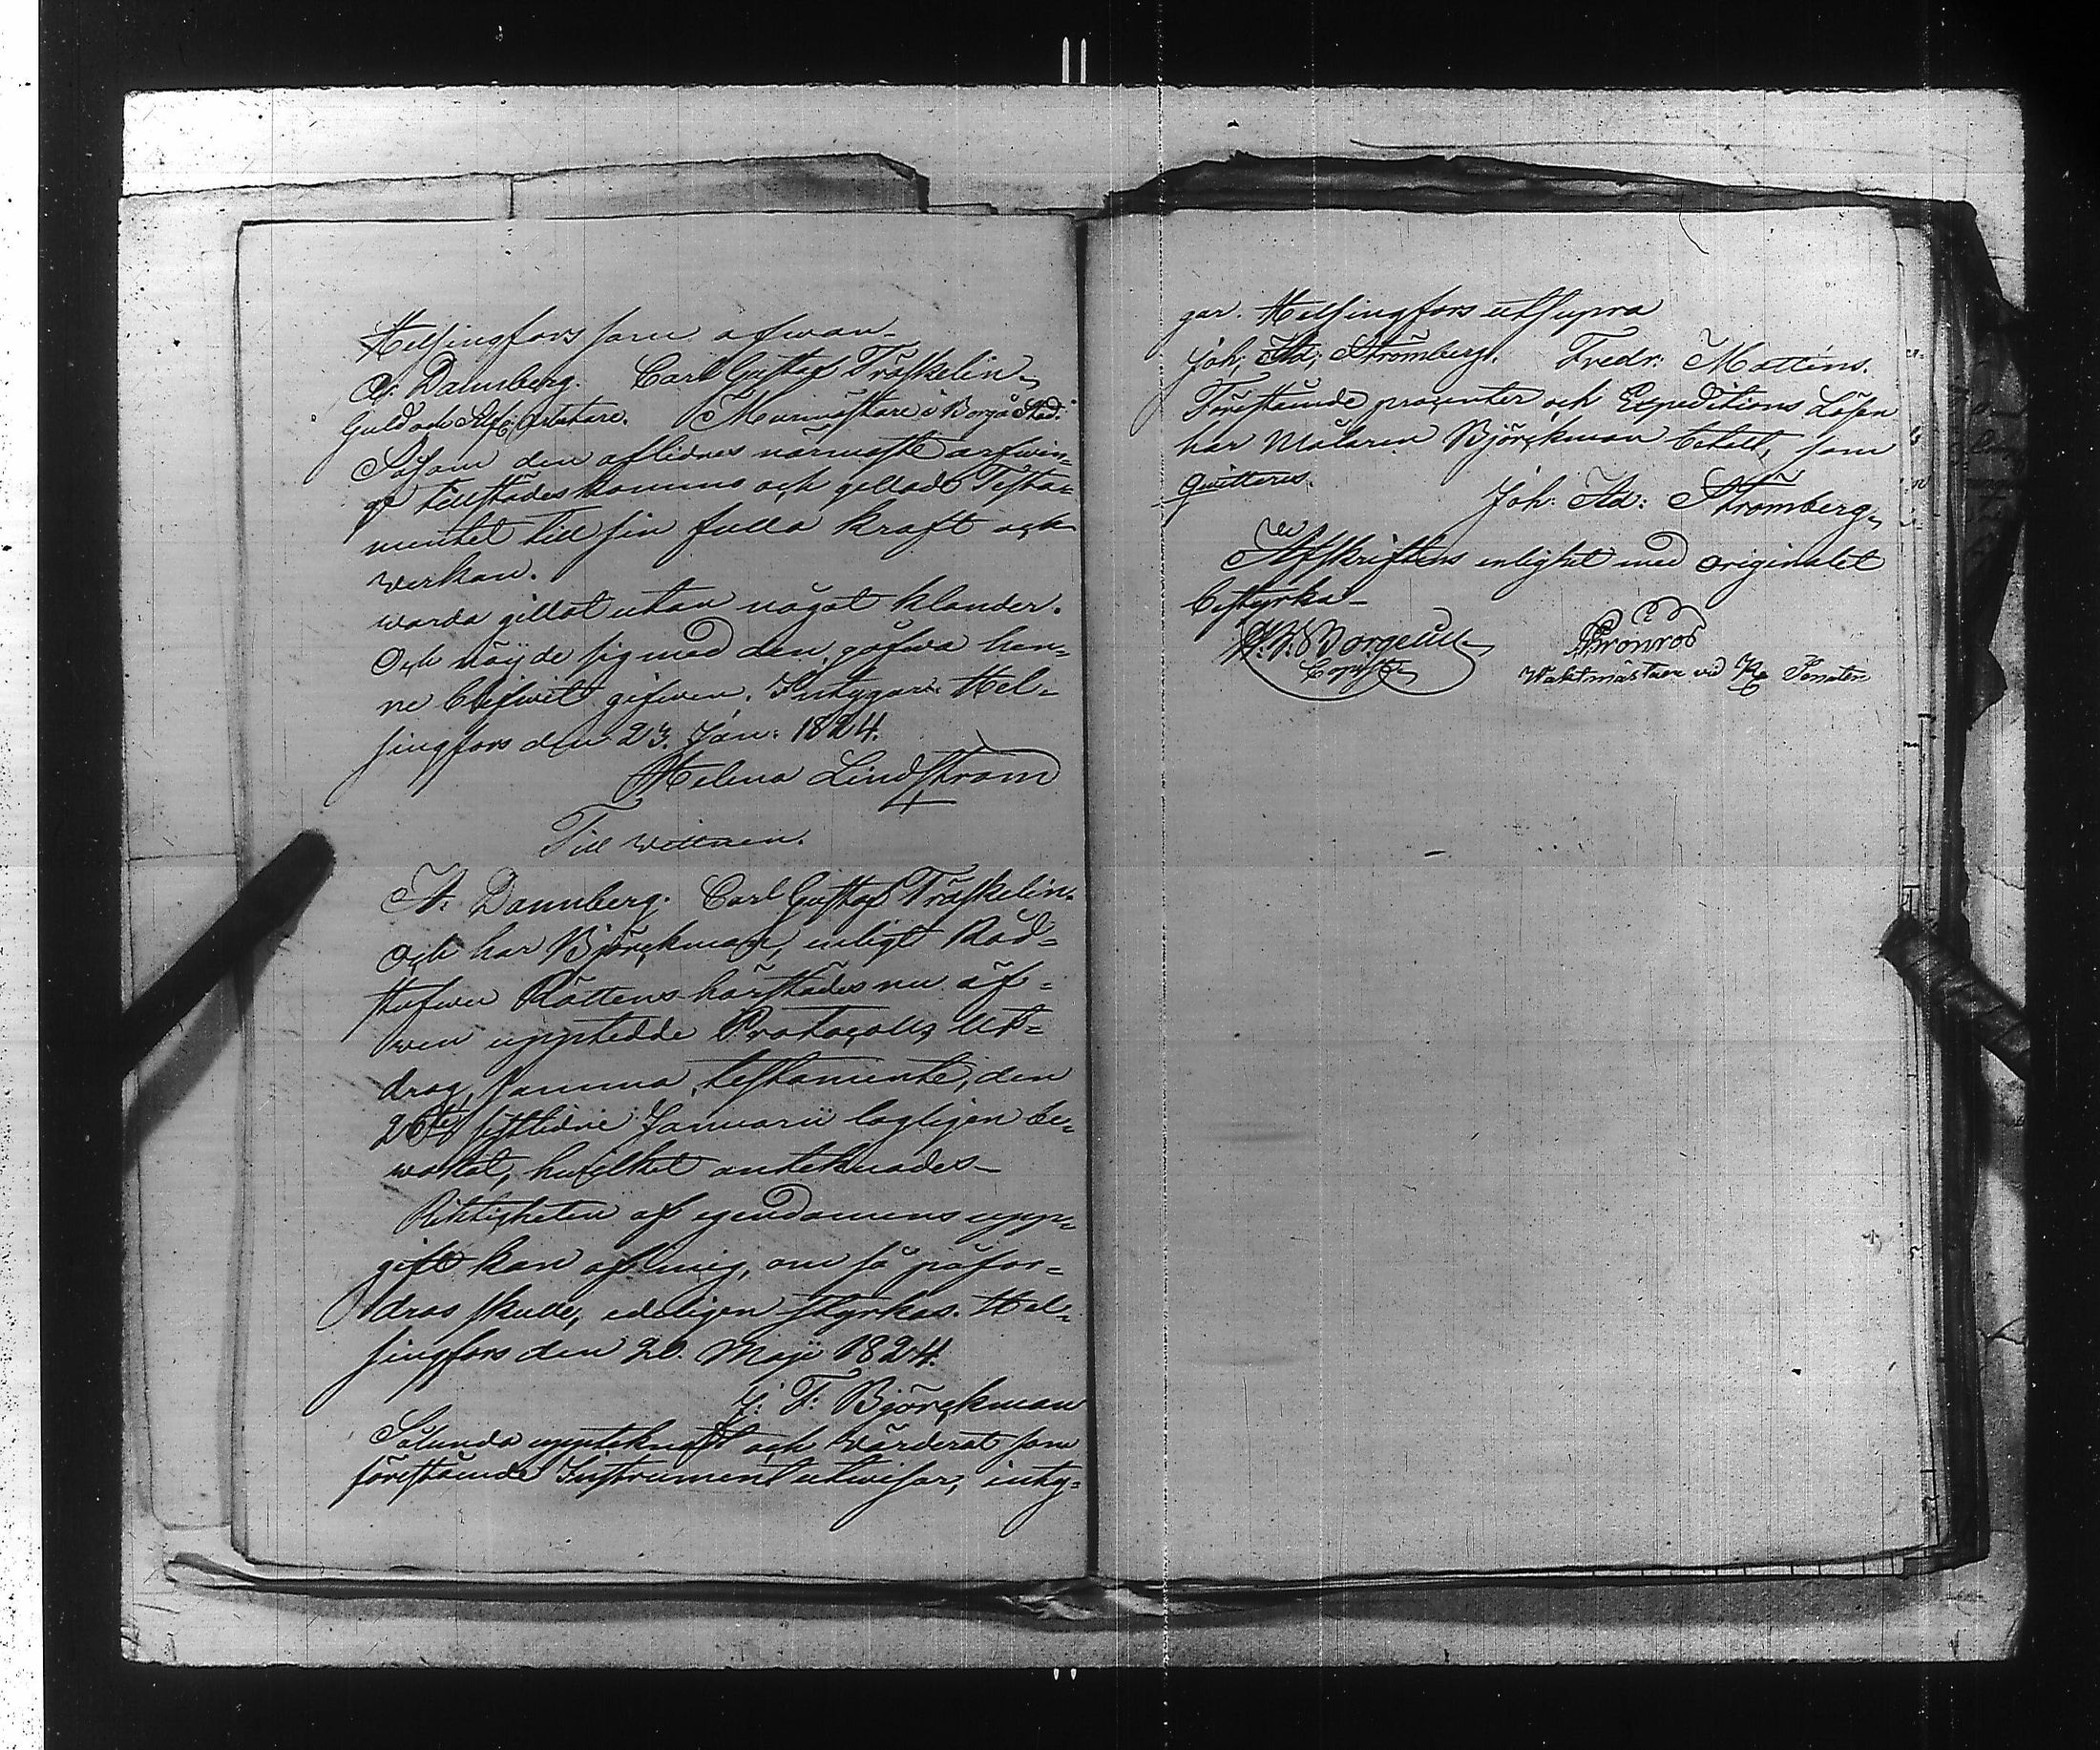 Helsingfors som ofwan_
A. Dannberg. Carl Gustaf Träskelin
Guld och Silf: Arbetare. Murmästare i Borgå Stad.
Såsom den aflidnes närmaste arfwin-
ge tillstädeskommo och gillade Testa=
mentet till sin fulla kraft och
werkan.
warda gillat utan något klander.
Och nöjde sig med den gåfwa hen=
ne blifwit gifwen. Intygar. Hel=
singfors den 23. Jan: 1824.
Helena Lindström
Till wittnen.
A: Dannberg. Carl Gustaf Träskelin.
Och har Björckman, enligt Råd=
stufwu Rättens härstädes nu äf=
wen upptedde Protocolls Ut=
drag, samma testamente, den
26te sistledne Januarii lagligen be=
wakat, hwilket anteknades_
Riktigheten af egendomens upp=
gift kan af mig, om så påfor=
dras skulle, edeligen styrkas. Hel=
singfors den 20. Maji 1824.
J: F: Björckman
Sålunda upptecknadt och Värderat som
förestående Instrument utwisar, inty=
gar. Helsingfors utsupra
Joh: Ad: Strömberg. Fredr: Matténs.
Förestående procenter och Expeditions Lösen
har Målaren Björckman betalt, som
quitteras.
Joh: Ad: Strömberg
Afskriftens enlighet med originalet
bestyrka_
Copist
Waktmästare vid Senaten